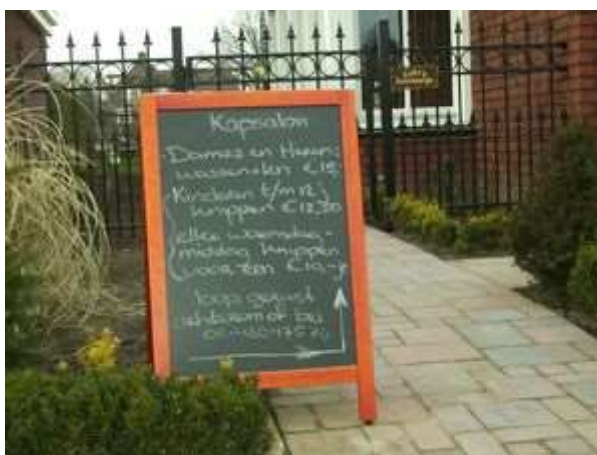 Kapsalon
Dames en Heren:
wassen+kn €15,-
Kinderen t/m 12 j
knippen €12,50
elke woensdag-
middag knippen
voor een €10,-
loop gerust
achterom of bel